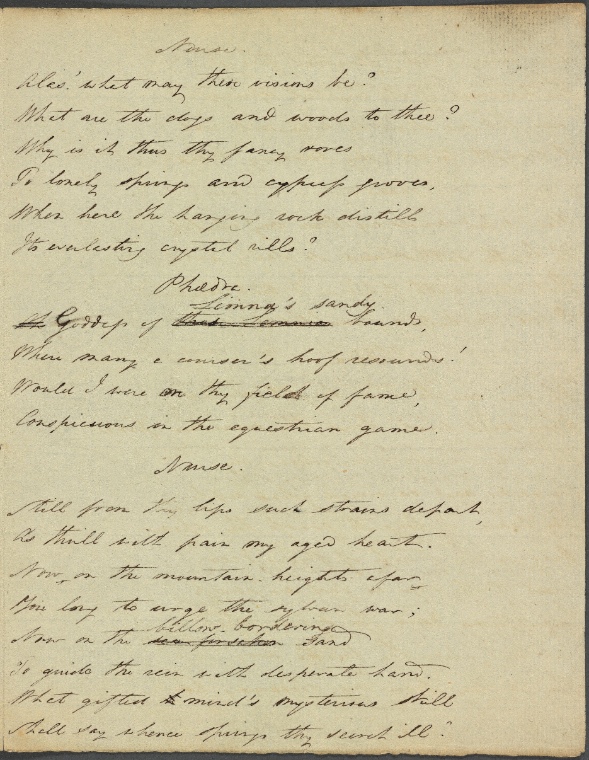 Nurse.
Alas! what may these visions be?
What are the dogs and woods to thee?
Why is it thus thy fancy roves
To lonely springs and cypress groves,
When here the hanging rock distills
Its everlasting crystal rills?
Phædra.
Limna's sandy
Goddess of bounds,
Where many a courser's hoof resounds!
Would I were on thy field of fame,
Conspicuous in the equestrian game.
Nurse.
Still from thy lips such strains depart,
As thrill with pain my aged heart.
Now, on the mountain-heights afar
You long to urge the sylvan war;
billow-bordering
Now on the sand
To guide the rein with desperate hand.
What gifted mind's mysterious skill
Shall say whence springs thy secret ill?